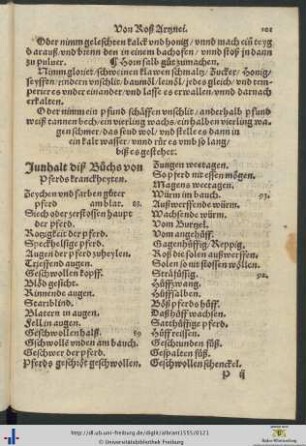 Von Roß Artznei.
Oder nimm geleschten kalck vnd honig / vnnd mach eiñ teyg
darauß, vnd brenn den in einem bachofen / vnnd stoß jn dann
zu puluer. ¶ Horn salb gůt zumachen.
Nimm glöriet / schweinen klawen schmaltz / Zucker / Honig /
seyffen / rindern vnschlit / baumöl / leinöl / jedes gleich / vnd tem-
perier es vnder einander / vnd lasse es erwallen / vnnd darnach
erkalten.
Oder nimm ein pfund schäffen vnschlit / anderhalb pfund
weiß tannen bech / ein vierling wachs / ein halben vierling wa-
gen schmer / das seud wol / vnd stelle es dann in
ein kalt wasser / vnnd rür es vmb so lang /
biß es gestehet.
Innhalt diß Bůchs von
Pferds kranckheyten.
Zeychen vnd farben gůter
pferd am blat.
Siech oder zerstossen haupt
der pferd.
Rotzigkeit der pferd.
Speckhelsige pferd.
Augen der pferd zuheylen.
Trieffend augen.
Geschwollen kopff.
Blöd gesicht.
Rinnende augen.
Starblind.
Blatern in augen.
Fell in augen.
Geschwollen halß.
Gschwollẽ vnden am bauch.
Geschwer der pferd.
Pferds geschröt geschwollen.
Zungen weetagen.
So pferd nit essen mögen.
Magens weetagen.
Würm im bauch.
Außwerffende würm.
Wachsende würm.
Vom Burtzel.
Vom angehüff.
Gagenhüffig / Reppig.
Roß die solen außwerffen.
Solen so nit stossen wöllen.
Sträfüssig.
Hüffzwang.
Hüffsalben.
Böß pferds hüff.
Daß hüff wachsen.
Satthäfftige pferd.
Hüffreissen.
Geschunden füß.
Gespalten füß.
Geschwollen schenckel.
P ij
http://dl.ub.uni-freiburg.de/diglit/albrant1555/0121
© Universitätsbibliothek Freiburg